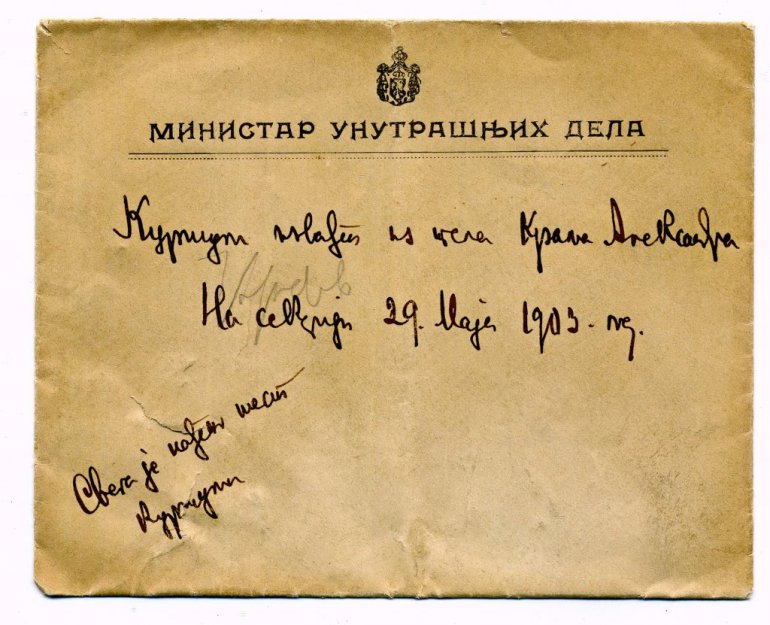 МИНИСТАР УНУТРАШЊИХ ДЕЛА
Куршуми из тела Краља Александра
На секцији 29. Маја 1903. год.
Свега је нађено шест
куршума